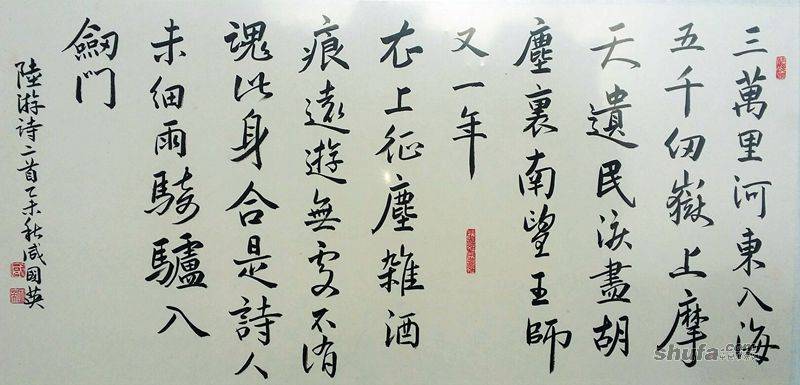 三萬里河東入海
五千仞嶽上摩
天遺民淚盡胡
塵裏南望王師
又一年
衣上征塵雜酒
痕遠遊無處不消
魂此身合是詩人
未細雨騎驢入
劒門
陸游詩二首乙未秋咸國英
shufa.com